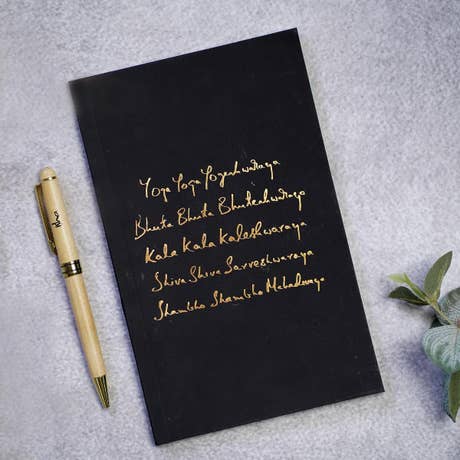 Yoga Yoga Yogeshwaraya
Bhuta Bhuta Bhuteshwaraya
Kala Kala Kaleshwaraya
Shiva Shiva Sarveshwaraya
Shambho Shambho Mahadevaya